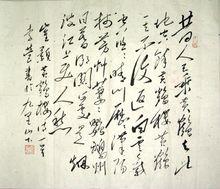 昔人乘黄鹤去此
地空余黄鹤楼黄鹤
一去不复返白云千载
空悠悠晴川历历汉阳
树芳草萋萋鹦鹉洲
日暮乡关何处是烟
波江上使人愁
崔颢黄鹤楼诗
书于九里山下